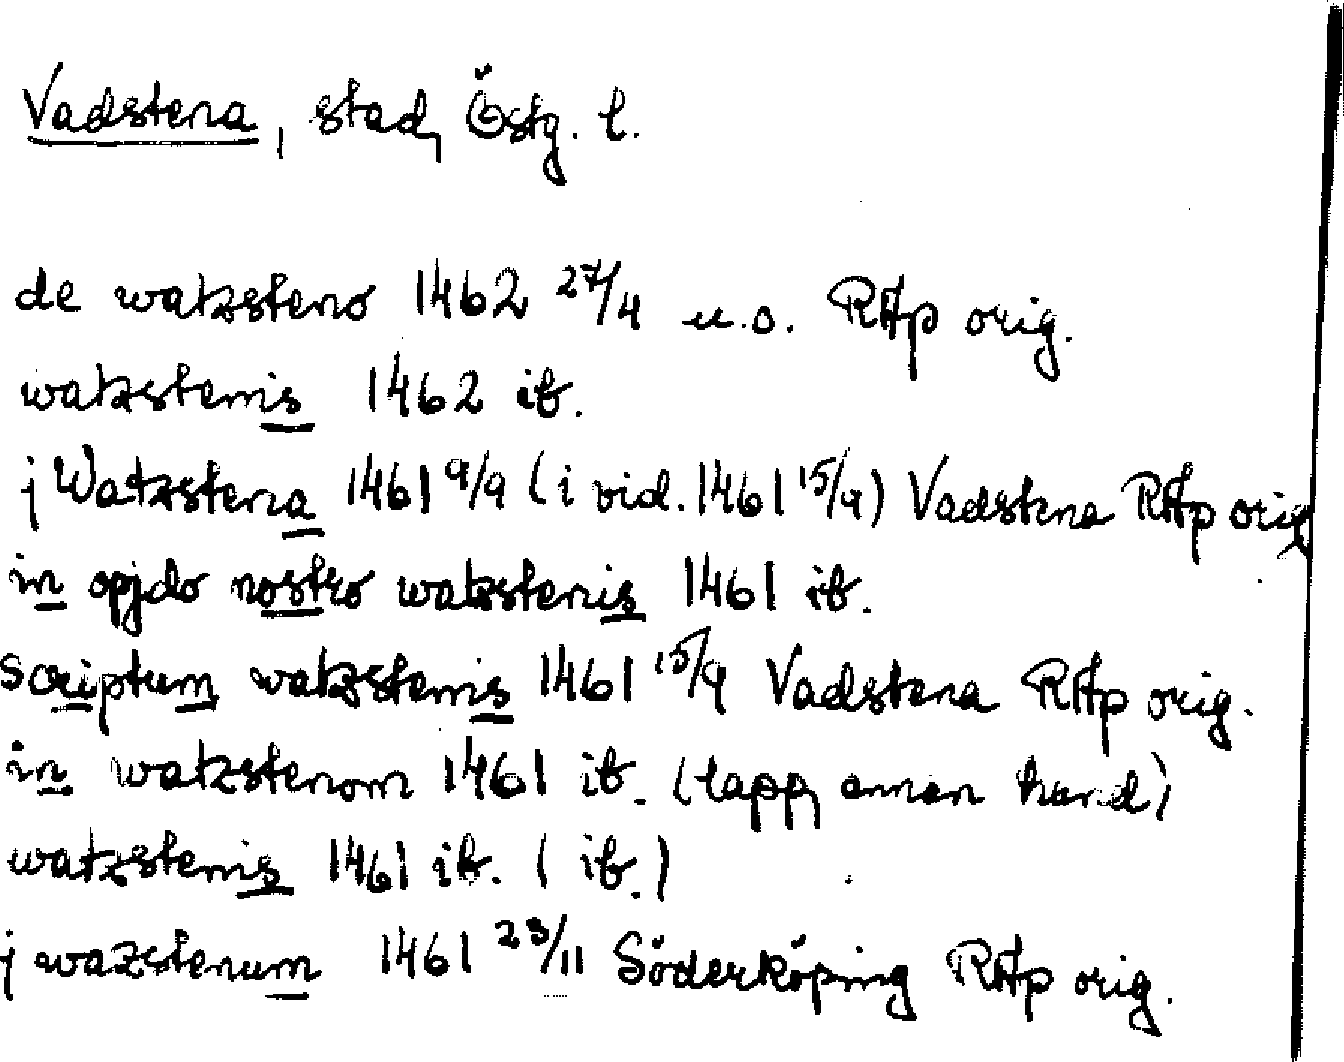 Vadstena, stad, Östg. l.
de watzsteno 1462 27/4 u.o. RAp orig.
watzstenis 1462 ib.
j Watzstena 1461 9/9 (i vid. 1461 15/9) Vadstena RAp orig
in opjdo nostro watzstenis 1461 ib.
scriptum watzstenis 1461 15/9 Vadstena RAp orig.
in watzstenom 1461 ib. (lapp, annan hand)
watzstenis 1461 ib. (ib.)
j wazstenum 1461 23/11 Söderköping RAp orig.